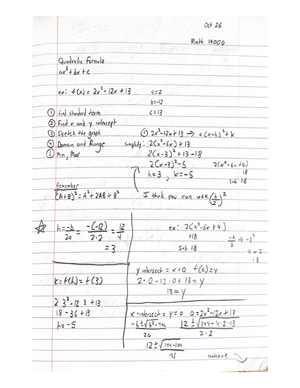 Oct 26
Math 14000
Quadratic Formula
ax² + bx + c
ex: f(x) = 2x² - 12x + 13
a = 2
b = -12
c = 13
① find standard form
② Find x and y intercept
③ Sketch the graph
④ Domain and Range
⑤ Min, Max
① 2x² - 12x + 13 → a(x-h)² + k
Simplify: 2(x² - 6x) + 13
2(x-3)² + 13 - 18
2(x-3)² - 5
h = 3, k = -5
2(x² - 6x + 9)
+18
sub 18
Remember
(A+B)² = A² + 2AB + B²
I think you can use (b/2)²
h = -b/2a = -(-12)/2·2 = 12/4
= 3
ex: 2(x² - 6x + 9)
+18
sub 18
9 × 2
18
k = f(h) = f(3)
2·3² - 12·3 + 13
18 - 36 + 13
k = -5
y-intersect = x = 0 f(0) = y
2·0 - 12·0 + 13 = y
13 = y
x-intersect = y = 0 0 = 2x² - 12x + 13
-b ± √b² - 4ac
2a
12 ± √144 - 4·2·13
2·2
12 ± √144 - 104
4